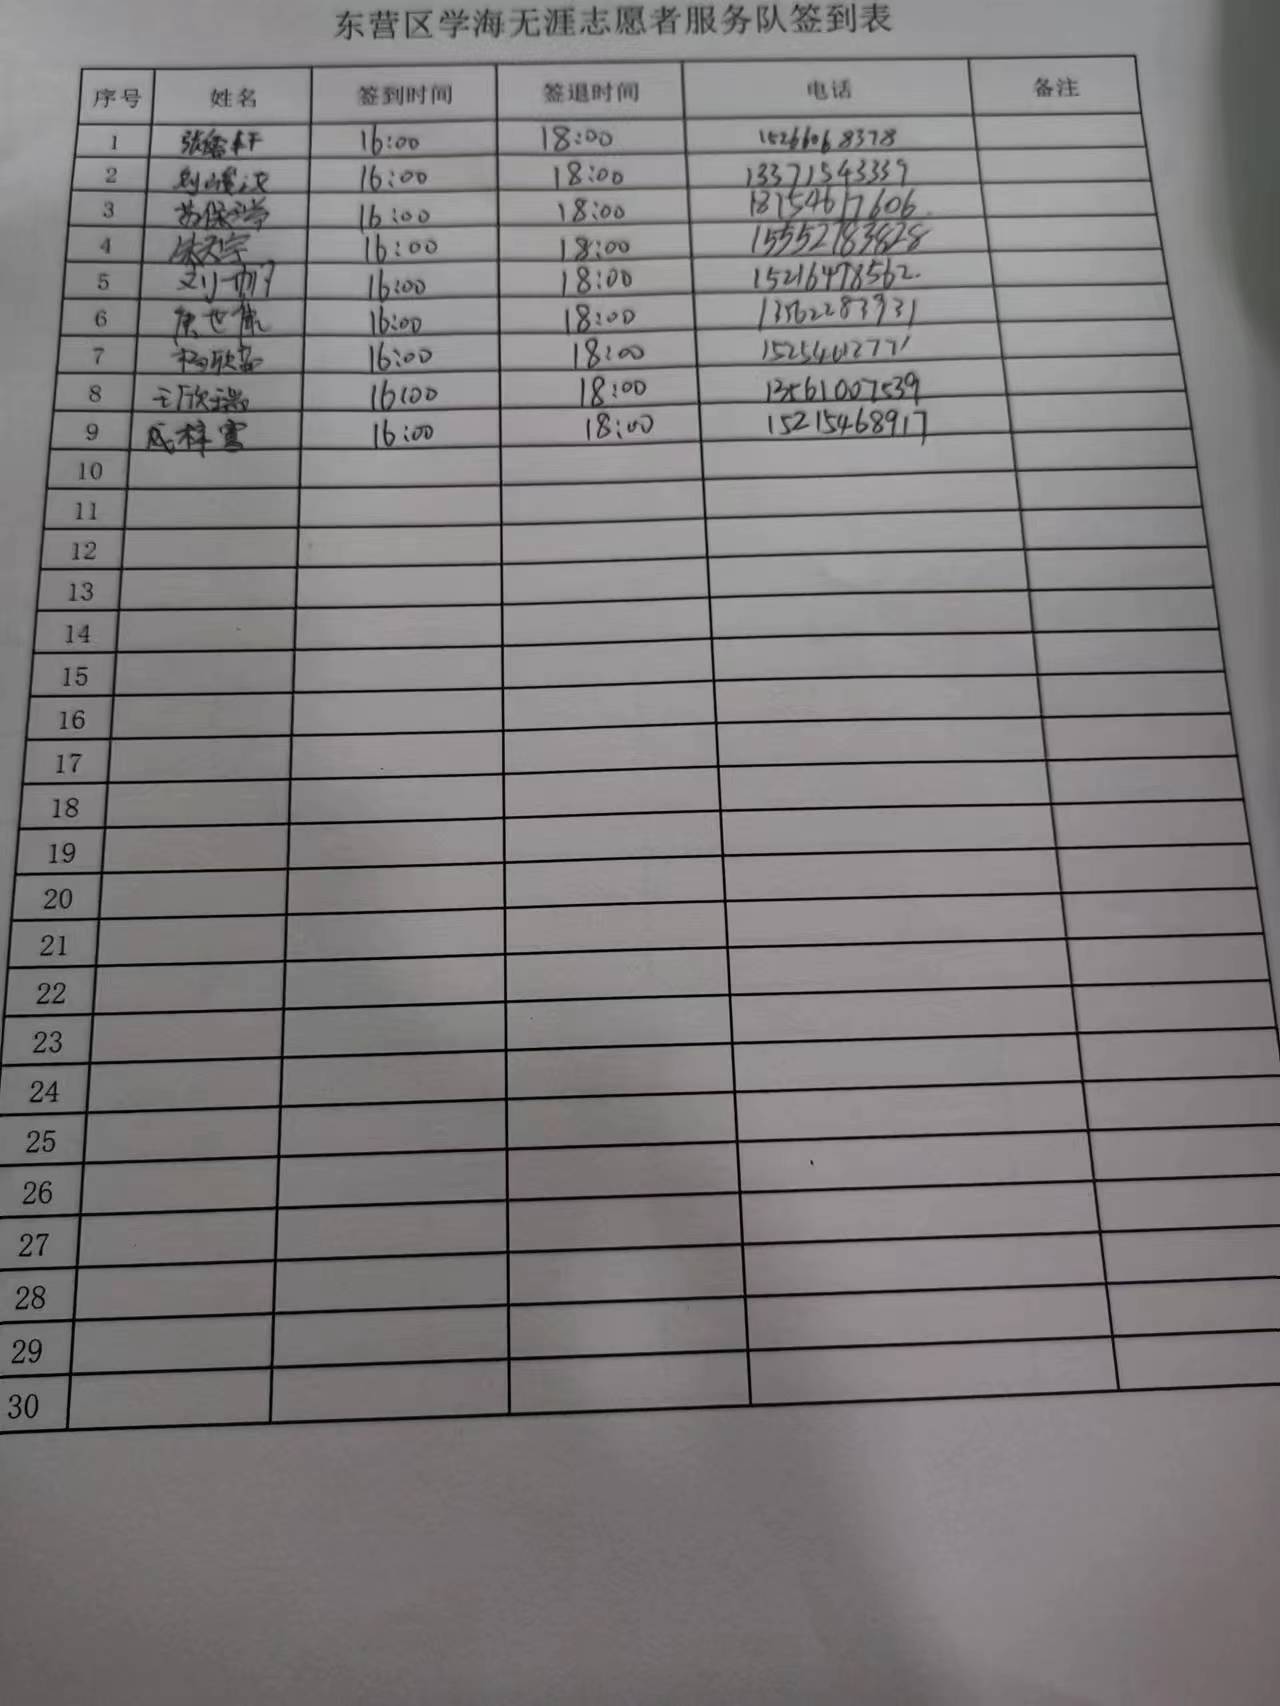 东营区学海无涯志愿者服务队签到表
序号 姓名 签到时间 签退时间 电话 备注
1 16:00 18:00 15266068378
2 16:00 18:00 13371543339
3 16:00 18:00 18754617606
4 16:00 18:00 15552783828
5 16:00 18:00 15216478562.
6 16:00 18:00 13562283931
7 16:00 18:00
8 王欣瑞 16:00 18:00 13561007539
9 成梓雪 16:00 18:00 15215468917
10
11
12
13
14
15
16
17
18
19
20
21
22
23
24
25
26
27
28
29
30